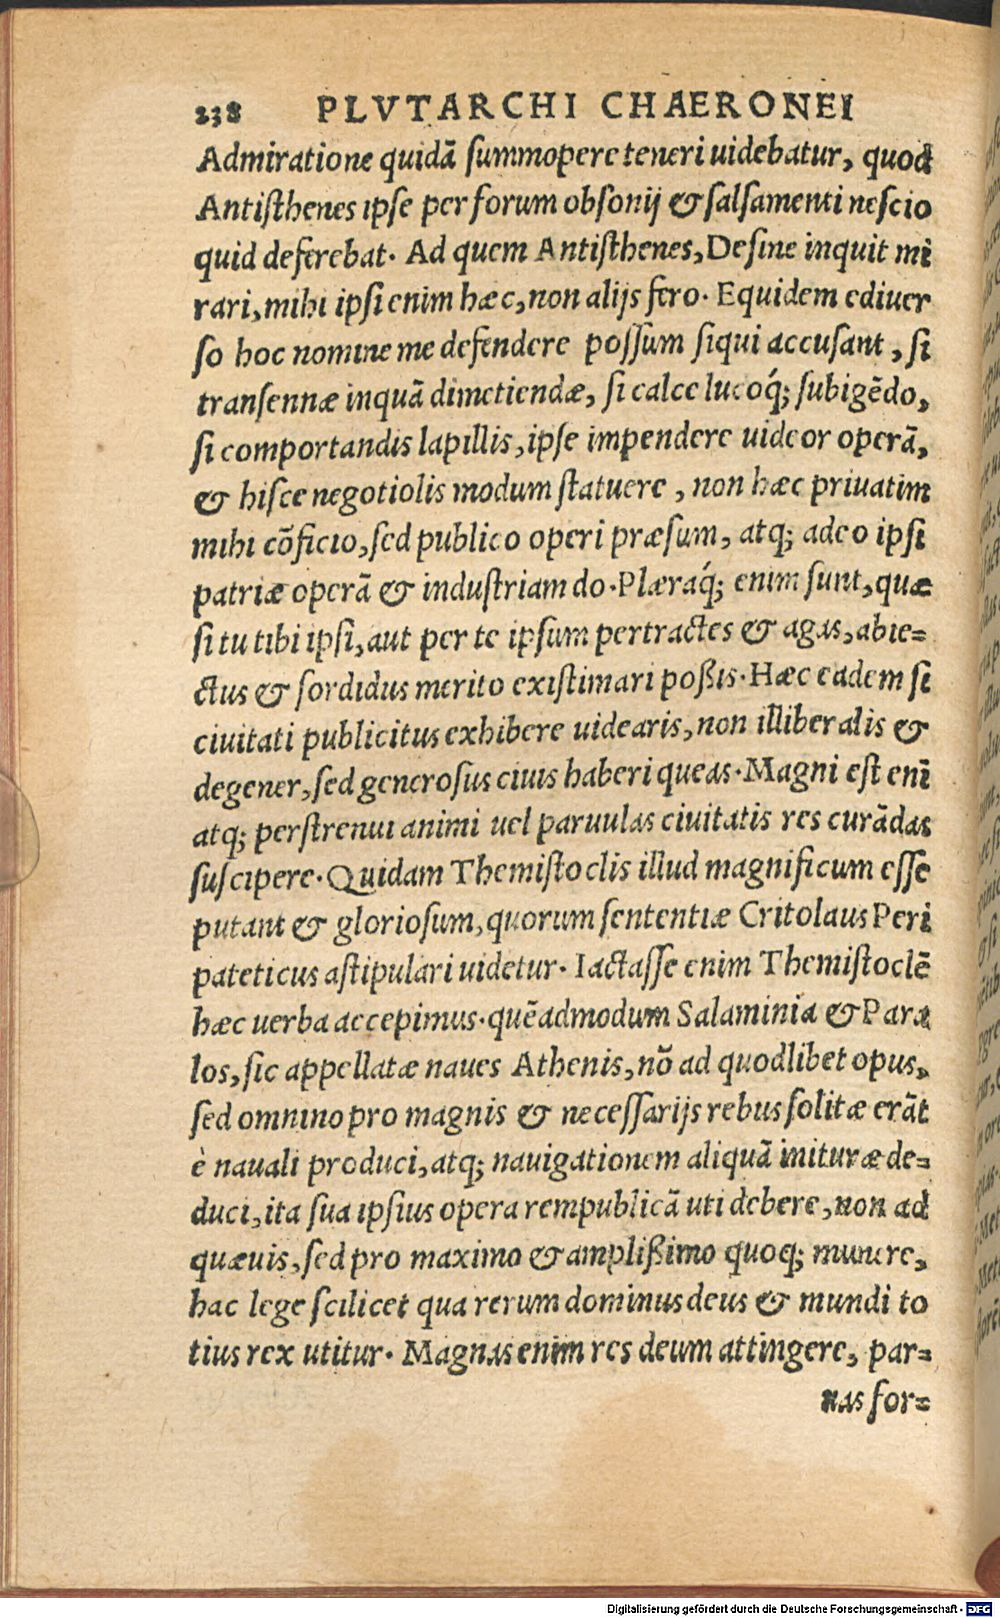 238 PLVTARCHI CHAERONEI
Admiratione quidā summopere teneri uidebatur, quod
Antisthenes ipse per forum obsonij & salsamenti nescio
quid deferebat. Ad quem Antisthenes, Desine inquit mi
rari, mihi ipsi enim hæc, non alijs fero. Equidem ediuer
so hoc nomine me defendere possum siqui accusant, si
transennæ inquā dimetiendæ, si calce lutoq́; subigēdo,
si comportandis lapillis, ipse impendere uideor operā,
& hisce negotiolis modum statuere, non hæc priuatim
mihi cōficio, sed publico operi præsum, atq; adeo ipsi
patriæ operā & industriam do. Plæraq́; enim sunt, quæ
si tu tibi ipsi, aut per te ipsum pertractes & agas, abie=
ctus & sordidus merito existimari poßis. Hæc eadem si
ciuitati publicitus exhibere uidearis, non illiberalis &
degener, sed generosus ciuis haberi queas. Magni est enī
atq; perstrenui animi uel paruulas ciuitatis res curādas
suscipere. Quidam Themistoclis illud magnificum esse
putant & gloriosum, quorum sententiæ Critolaus Peri
pateticus astipulari uidetur. Iactasse enim Themistoclē
hæc uerba accepimus. quēadmodum Salaminia & Para
los, sic appellatæ naues Athenis, nō ad quodlibet opus,
sed omnino pro magnis & necessarijs rebus solitæ erāt
è nauali produci, atq; nauigationem aliquā inituræ de=
duci, ita sua ipsius opera rempublicā uti debere, non ad
quæuis, sed pro maximo & amplißimo quoq; munere,
hac lege scilicet qua rerum dominus deus & mundi to
tius rex utitur. Magnas enim res deum attingere, par=
uas for=
Digitalisierung gefördert durch die Deutsche Forschungsgemeinschaft - DFG